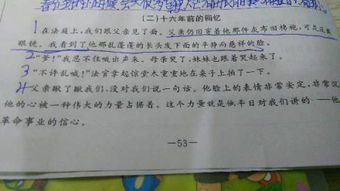 (二)十六年前的回忆
1 在法庭上,我们跟父亲见了面。父亲仍旧穿着他那件灰布旧棉袍,可是没戴
眼镜。我看到了他那乱蓬蓬的长头发下面的平静而慈祥的脸。
2 “爹!”我忍不住喊出声来。母亲哭了,妹妹也跟着哭起来了。
3 “不许乱喊!”法官拿起惊堂木重重地在桌子上拍了一下。
4 父亲瞅了瞅我们,没对我们说一句话。他脸上的表情非常安定,非常沉
他的心被一种伟大的力量占据着。这个力量就是他平日对我们讲的——他
革命事业的信心。
—53—